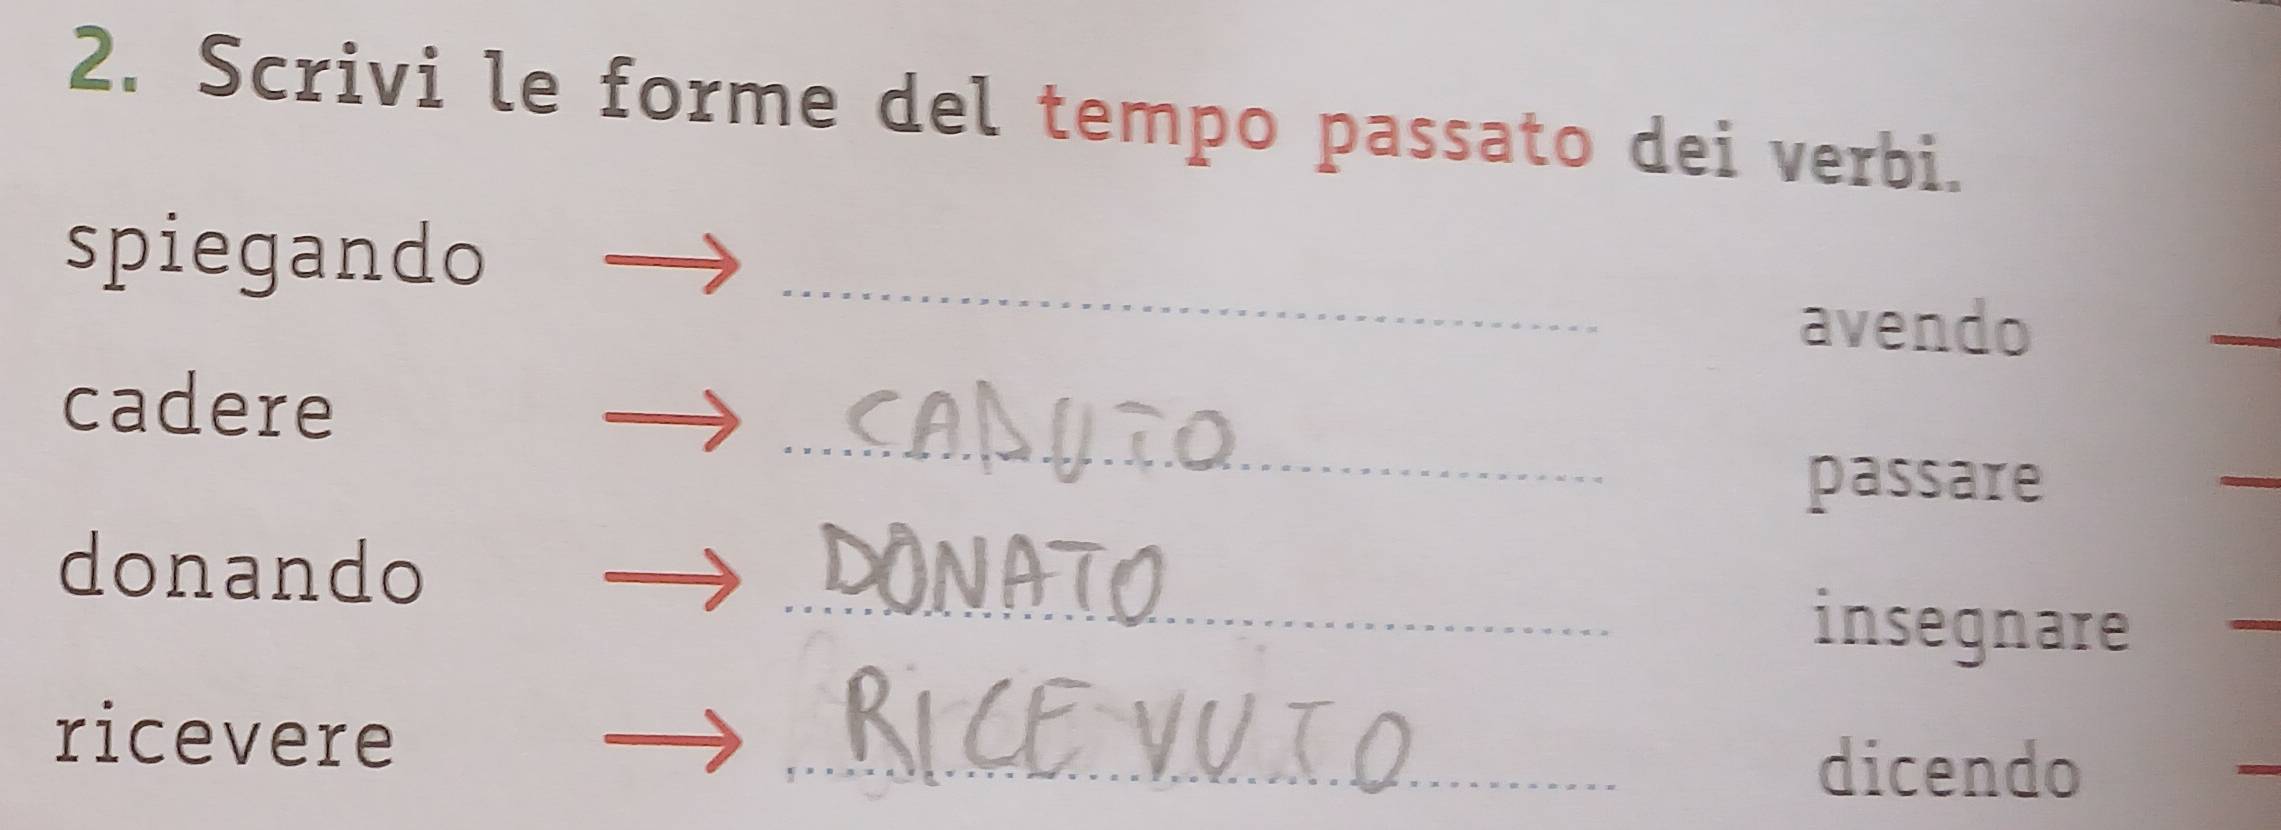 2. Scrivi le forme del tempo passato dei verbi.
spiegando →
cadere → CADUTO
donando → DONATO
ricevere → RICEVUTO
avendo
passare
insegnare
dicendo